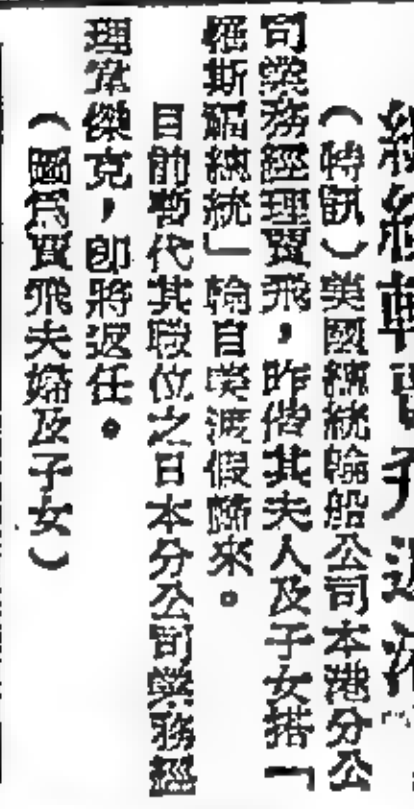 （特訊）美國總統輪船公司本港分公
司業務經理賈飛，昨偕其夫人及子女搭「
羅斯福總統」輪自美渡假歸來。
目前暫代其職位之日本分公司業務經
理常傑克，即將返任。
（圖爲賈飛夫婦及子女）